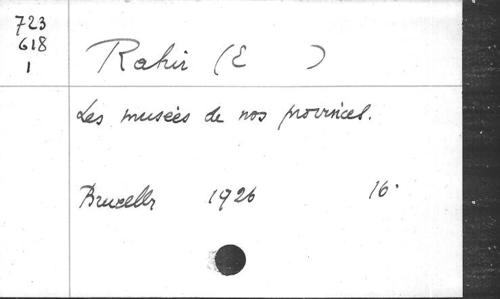 723
618
1
Rahir (E )
Les musées de nos provinces.
Bruxelles 1926 16°